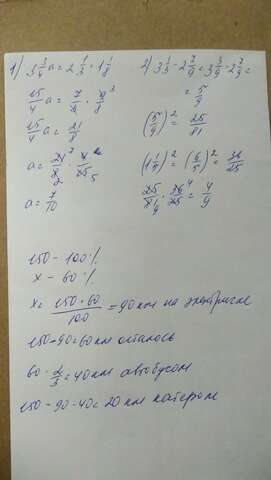 1) 3 3/4 a = 2 1/3 · 1 1/8
15/4 a = 7/3 · 9/8
15/4 a = 21/8
a = 21/8 · 4/15
a = 7/10
2) 3 1/3 - 2 7/9 = 3 3/9 - 2 7/9 =
= 5/9
(5/9)² = 25/81
(1 1/5)² = (6/5)² = 36/25
25/81 · 36/25 = 4/9
150 - 100%
x - 60%
x = 150·60/100 = 90 км на электричке
150-90=60 км осталось
60 · 2/3 = 40 км автобусом
150-90-40=20 км катером